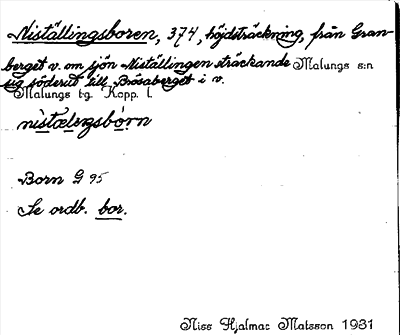 Niställingsboren, 374, höjdsträckning, från Gran-
berget v. om sjön Niställingen sträckande Malungs s:n
sig söderut till Brösaberget i v.
Malungs tg. Kopp. l.
nìstælıŋsbórn
Born G 95
Se ordb. bor.
Niss Hjalmar Matsson 1931